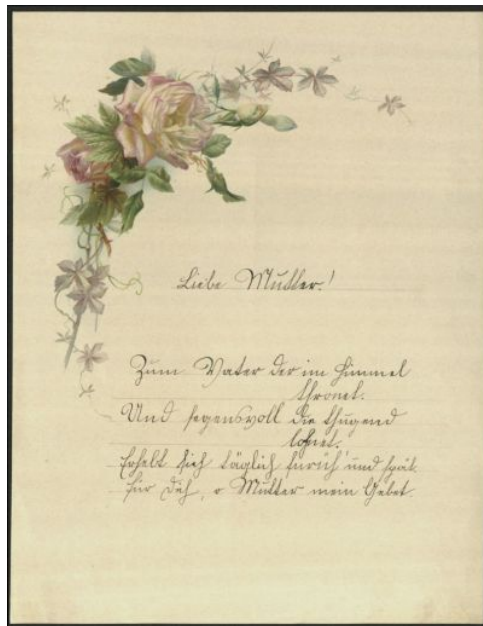 Liebe Mutter!
Zum Vater der im Himmel
thronet.
Und segensvoll die thugend
lohnet.
Erhebt sich täglich und spät
für dich, o Mutter mein Gebet.